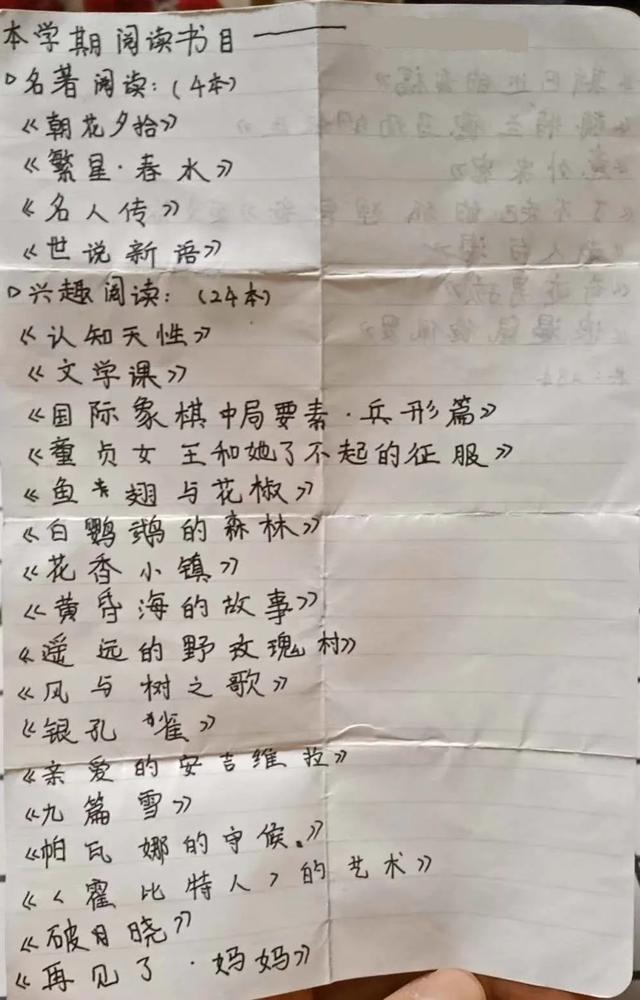 本学期阅读书目——
名著阅读：(4本)
《朝花夕拾》
《繁星·春水》
《名人传》
《世说新语》
兴趣阅读：(24本)
《认知天性》
《文学课》
《国际象棋中局要素·兵形篇》
《童贞女王和她了不起的征服》
《鱼翅与花椒》
《白鹦鹉的森林》
《花香小镇》
《黄昏海的故事》
《遥远的野玫瑰村》
《风与树之歌》
《银孔雀》
《亲爱的安吉维拉》
《九篇雪》
《帕瓦娜的守候》
《〈霍比特人〉的艺术》
《破晓》
《再见了·妈妈》